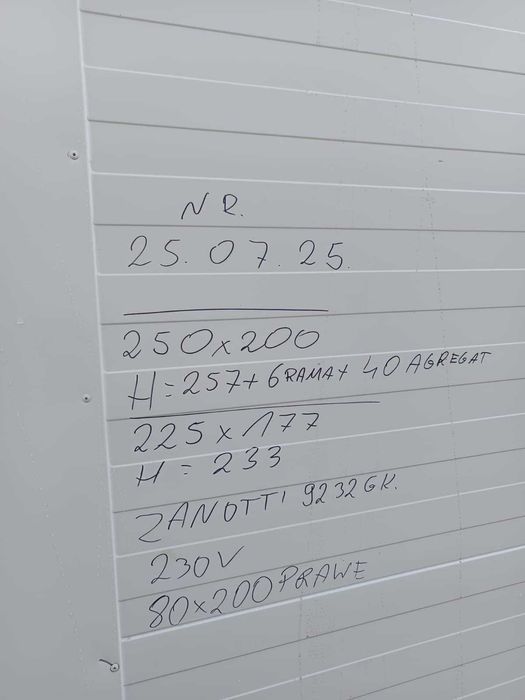 NR.
25.07.25.
250x200
H=257+6RAMA+40AGREGAT
225x177
H=233
ZANOTTI 9232GK.
230V
80x200PRAWE